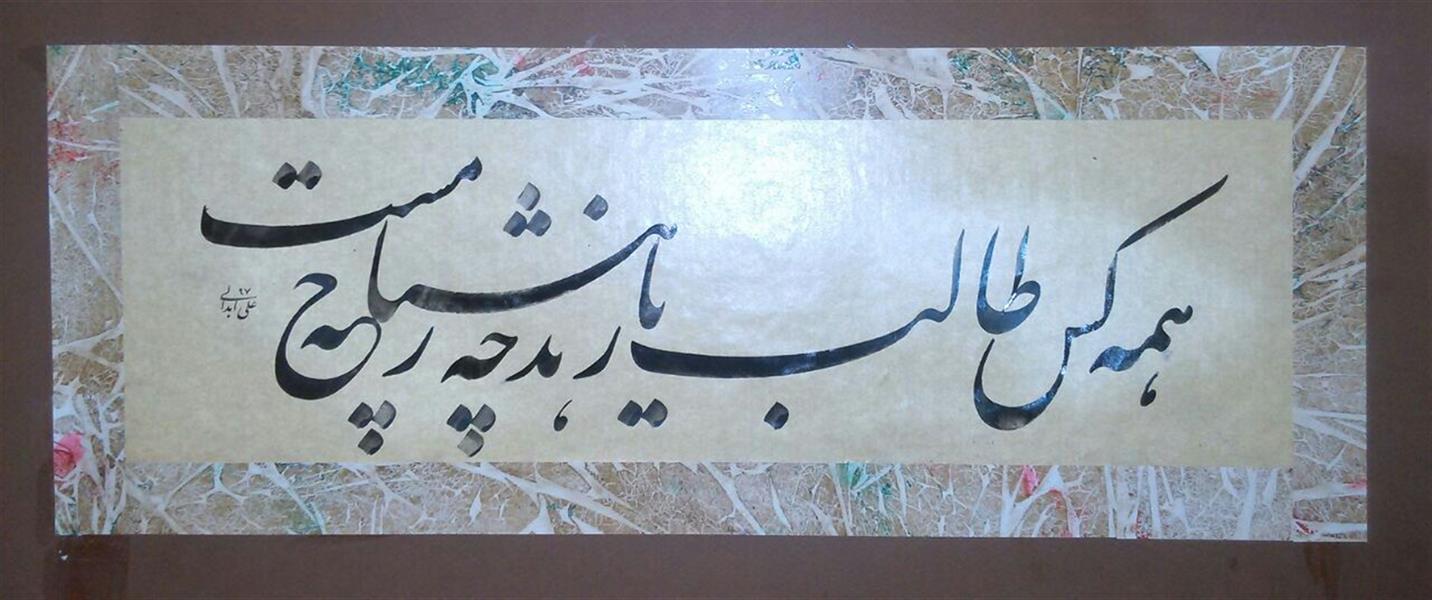 همه کس طالب یارند چه هشیار و چه مست
علی ابدالی ۹۷